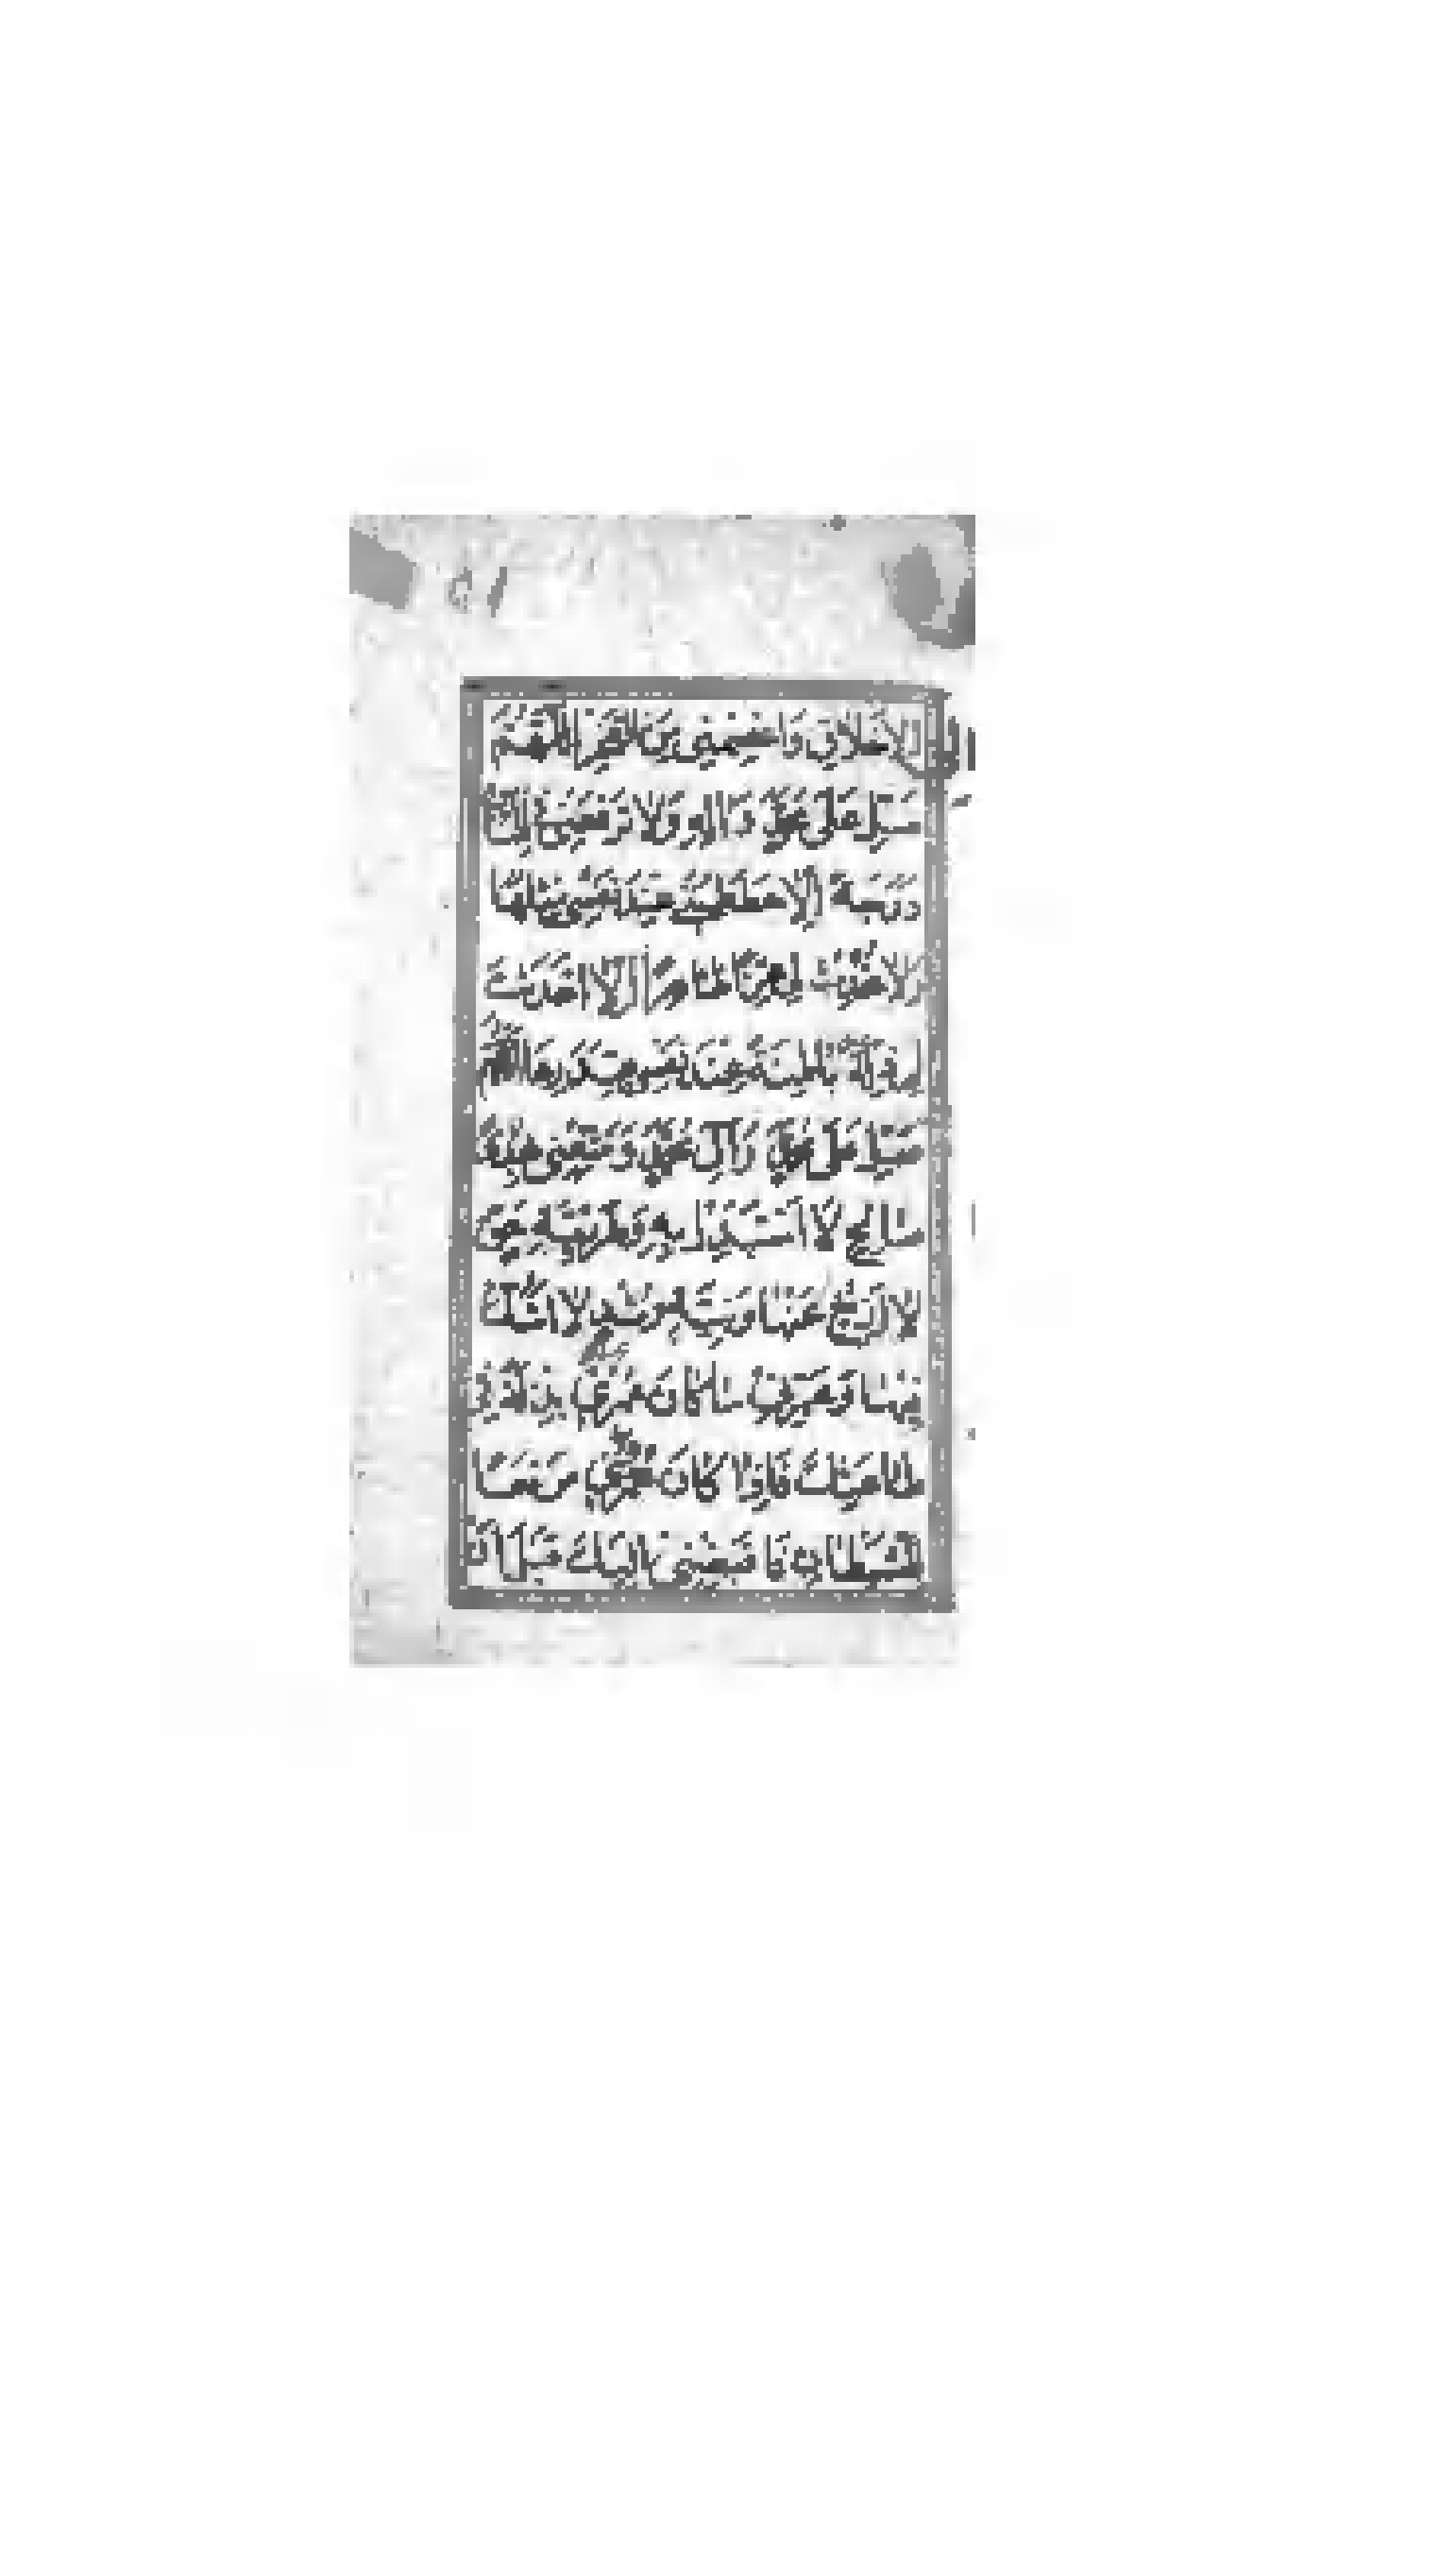 الاخلاق واعصمني من الفخر اللهم
صل على محمد واله ولا ترفعني في الناس
درجة الا حططتني عند نفسي مثلها
ولا تحدث لي عزا ظاهرا الا احدثت
لي ذلة باطنة عند نفسي بقدرها اللهم
صل على محمد وال محمد ومتعني بهدى
صالح لا استبدل به وطريقة حق
لا ازيغ عنها ونية رشد لا اشك
فيها وعمرني ما كان عمري بذلة في
طاعتك فاذا كان عمري مرتعا
للشيطان فاقبضني اليك قبل ان